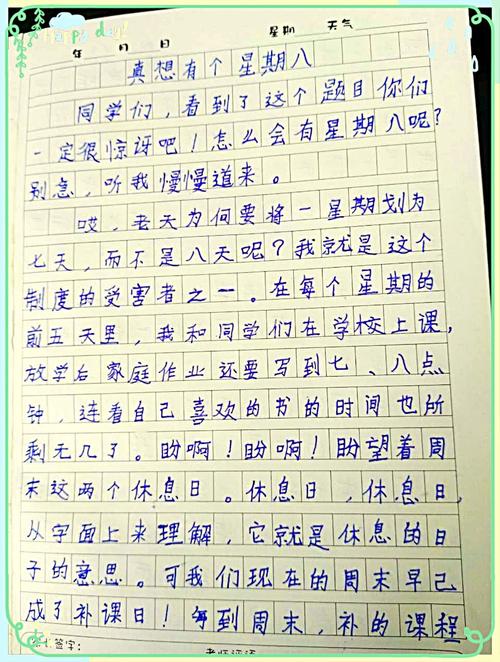 Happy day!
年 月 日 星期 天气
真想有个星期八
同学们，看到了这个题目你们
一定很惊讶吧！怎么会有星期八呢？
别急，听我慢慢道来。
哎，老天为何要将一星期划为
七天，而不是八天呢？我就是这个
制度的受害者之一。在每个星期的
前五天里，我和同学们在学校上课，
放学后家庭作业还要写到七、八点
钟，连看自己喜欢的书的时间也所
剩无几了。盼啊！盼啊！盼望着周
末这两个休息日。休息日，休息日，
从字面上来理解，它就是休息的日
子的意思。可我们现在的周末早已
成了补课日！每到周末，补的课程
签字：
老师评语